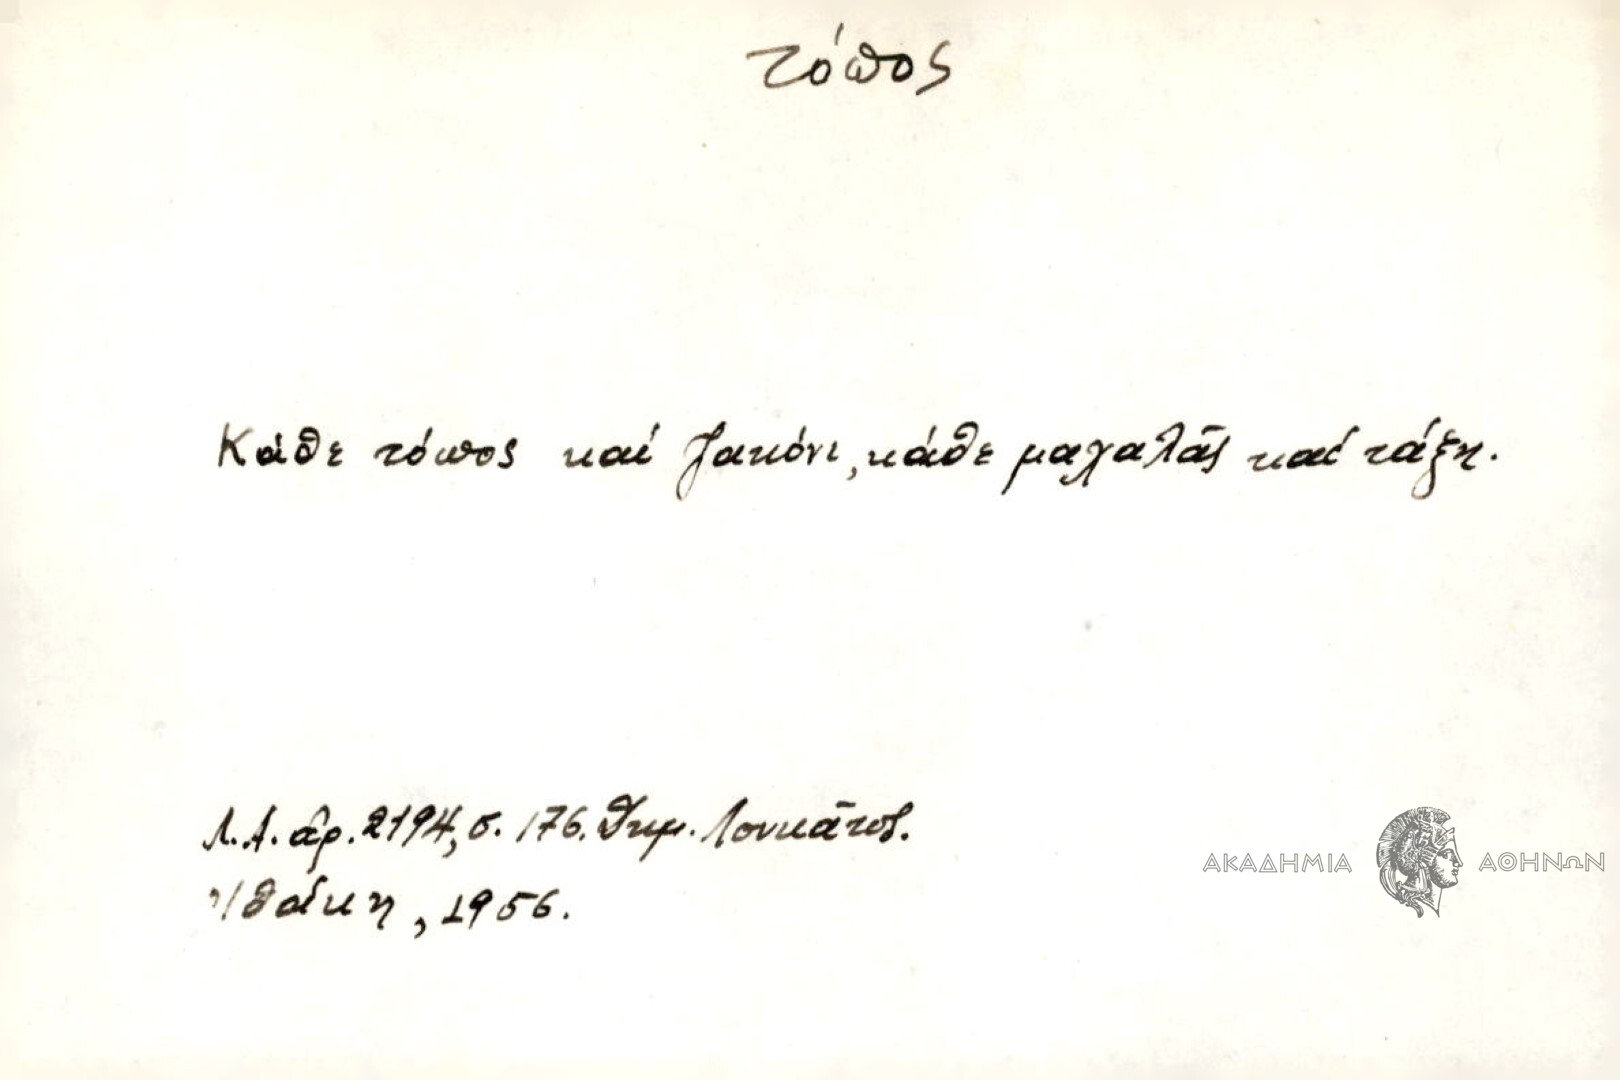 τόπος
Κάθε τόπος καί ζακόνι, κάθε μαχαλᾶς καί τάξη.
Λ.Α. ἀρ. 2194, σ. 176. Δημ. Λουκᾶτος.
Ἰθάκη, 1956.
ΑΚΑΔΗΜΙΑ ΑΘΗΝΩΝ